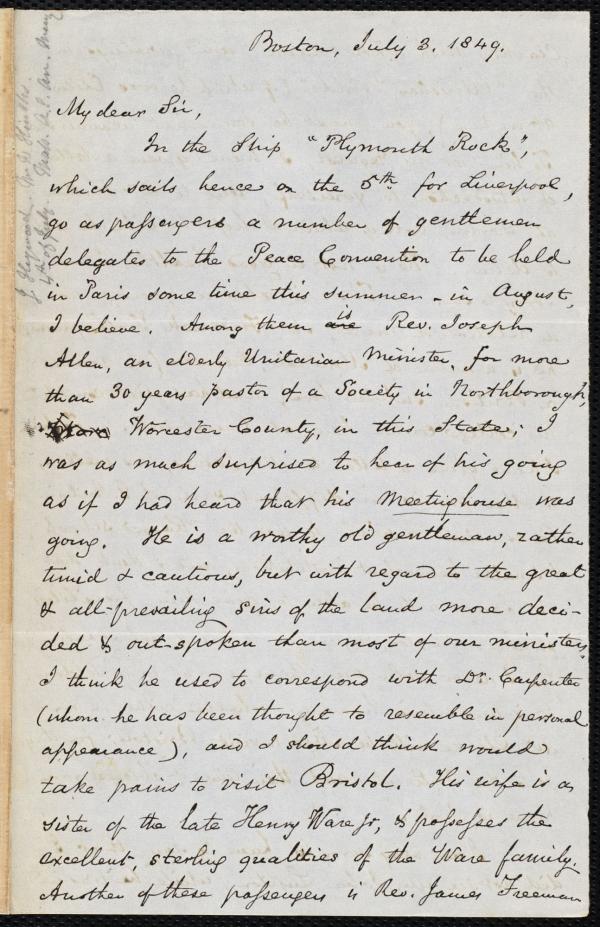 Boston, July 3. 1849.
My dear Sir,
In the Ship "Plymouth Rock",
which sails hence on the 5th. for Liverpool,
go as passengers a number of gentlemen
delegates to the Peace Convention to be held
in Paris some time this summer - in August,
I believe. Among them are is Rev. Joseph
Allen, an elderly Unitarian Minister, for more
than 30 years pastor of a Society in Northborough,
Worcester County, in this State; I
was as much surprised to hear of his going
as if I had heard that his Meetinghouse was
going. He is a worthy old gentleman, rather
timid & cautious, but with regard to the great
& all-prevailing sins of the land more deci-
ded & out-spoken than most of our ministers.
I think he used to correspond with Dr. Carpenter
(whom he has been thought to resemble in personal
appearance), and I should think would
take pains to visit Bristol. His wife is a
sister of the late Henry Ware Jr, & possesses the
excellent, sterling qualities of the Ware family.
Another of these passengers is Rev. James Freeman